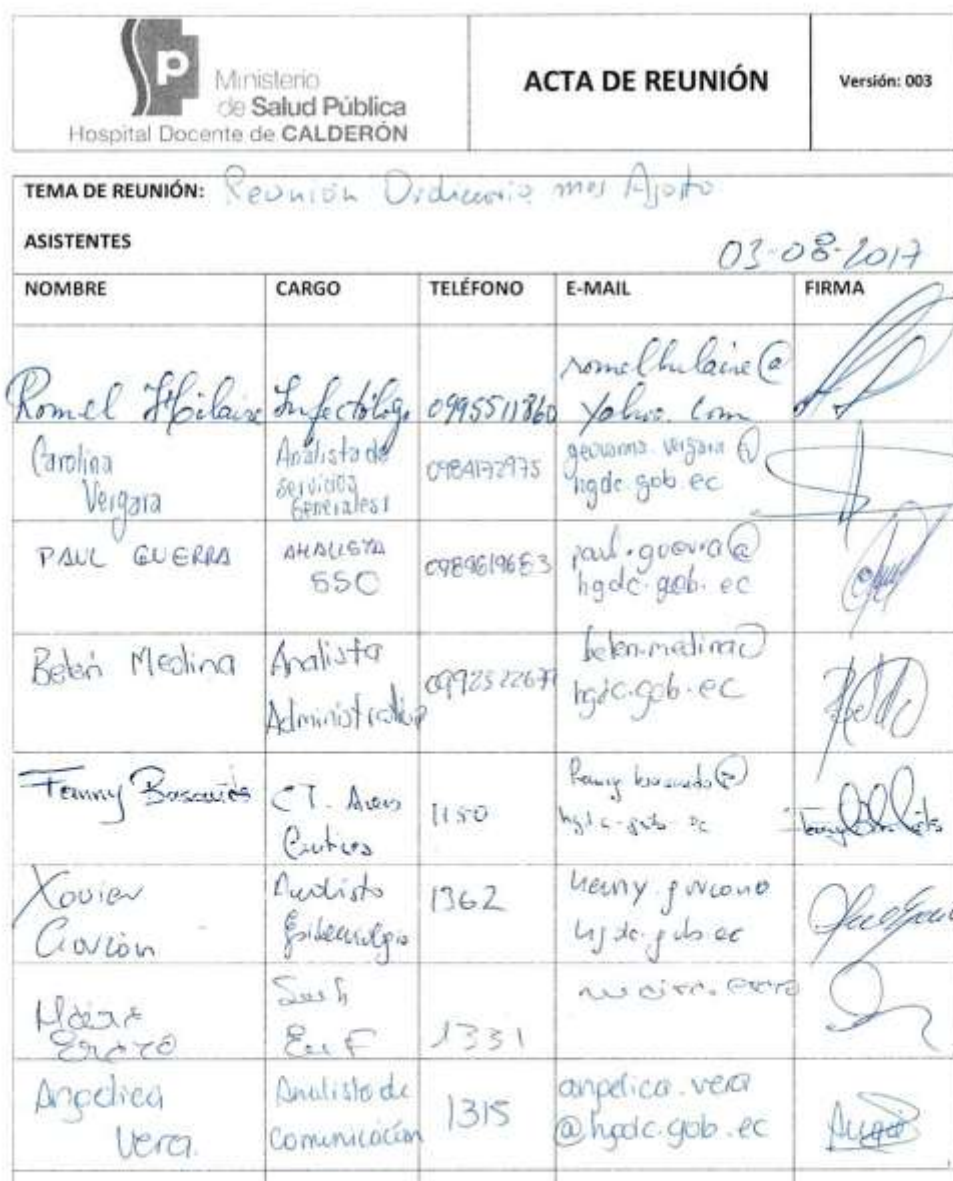 p
Ministerio
de Salud Pública
Hospital Docente de CALDERÓN
ACTA DE REUNIÓN
Versión: 003
TEMA DE REUNIÓN: Reunión Ordinaria mes Agosto
ASISTENTES
03-08-2017
NOMBRE CARGO TELÉFONO E-MAIL FIRMA
Romel Hilaire Infectólogo 0995511860 romelhilaire@
yahoo.com
Carolina
Vergara
Analista de
Servicios
Generales 1
0984172975
geovanna.vergara@
hgdc.gob.ec
PAUL GUERRA
ANALISTA
SSO
paul.guerra@
hgdc.gob.ec
Belén Medina
Analista
Administrativo
belen.medina@
hgdc.gob.ec
Fanny
CT. Areas
Críticas
1150
hgdc.gob.ec
Xavier
Analista
Epidemiología
1362
hgdc.gob.ec
1331
Angelica
Vera.
Analista de
comunicación
1315
angelica.vera
@hgdc.gob.ec